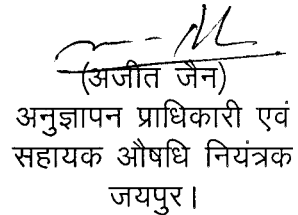 (अजीत जैन)
अनुज्ञापन प्राधिकारी एवं
सहायक औषधि नियंत्रक
जयपुर।